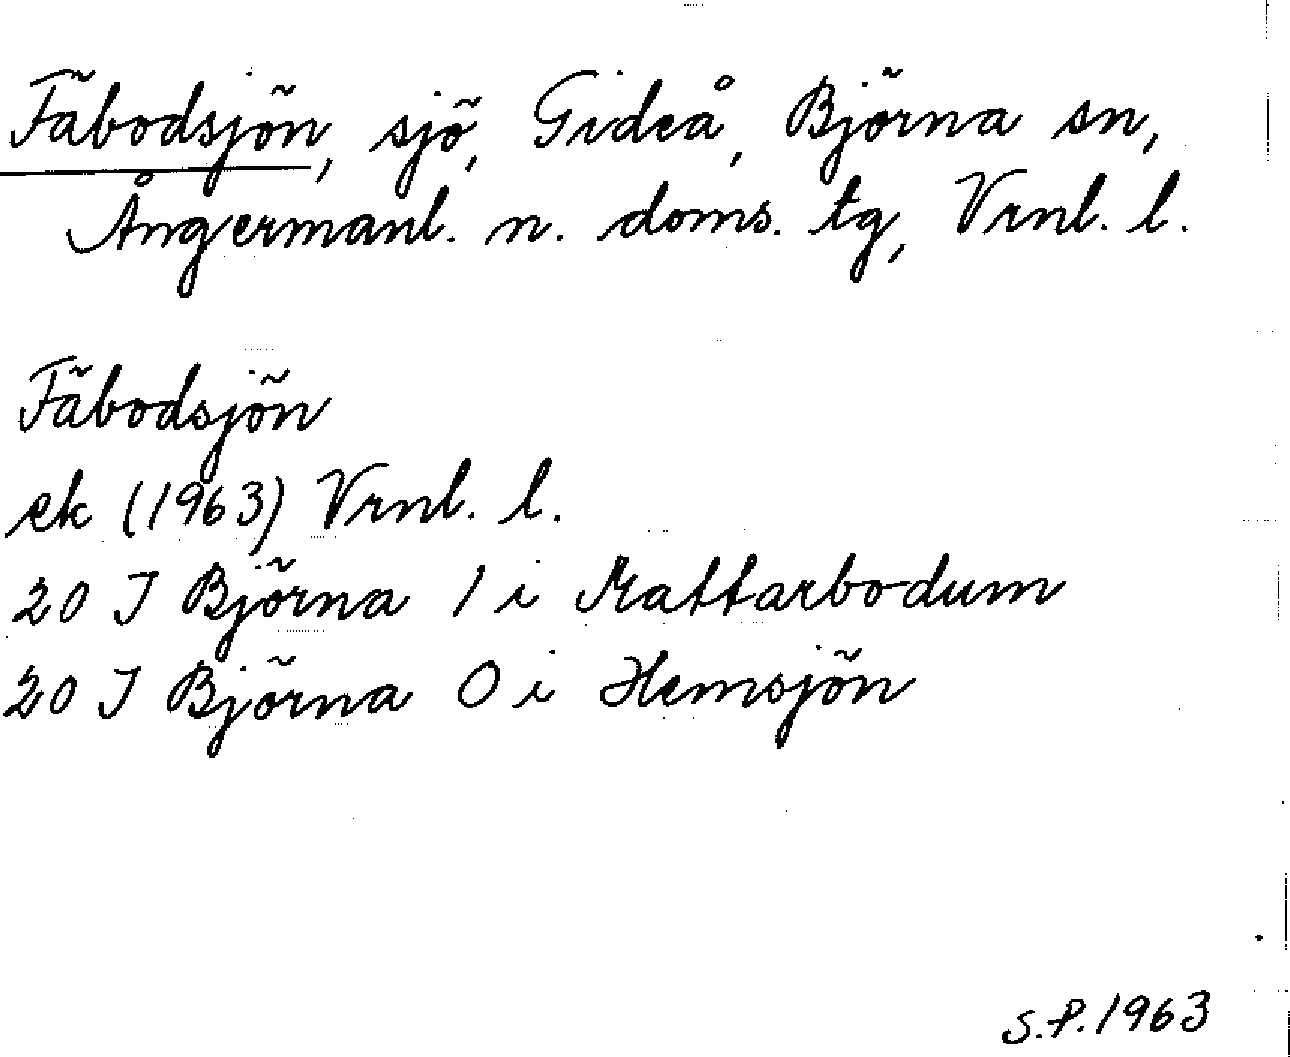 Fäbodsjön, sjö, Gideå, Björna sn,
Ångermanl. n. doms. tg, Vrnl. l.
Fäbodsjön
ek (1963) Vrnl. l.
20 I Björna 1 i Mattarbodum
20 I Björna 0 i Hemsjön
S.P. 1963